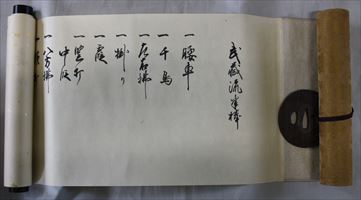 武蔵流半棒
一 腰車
一 千鳥
一 左右拂
一 掛り
一 霞
一 笠打
中段
一 八方拂